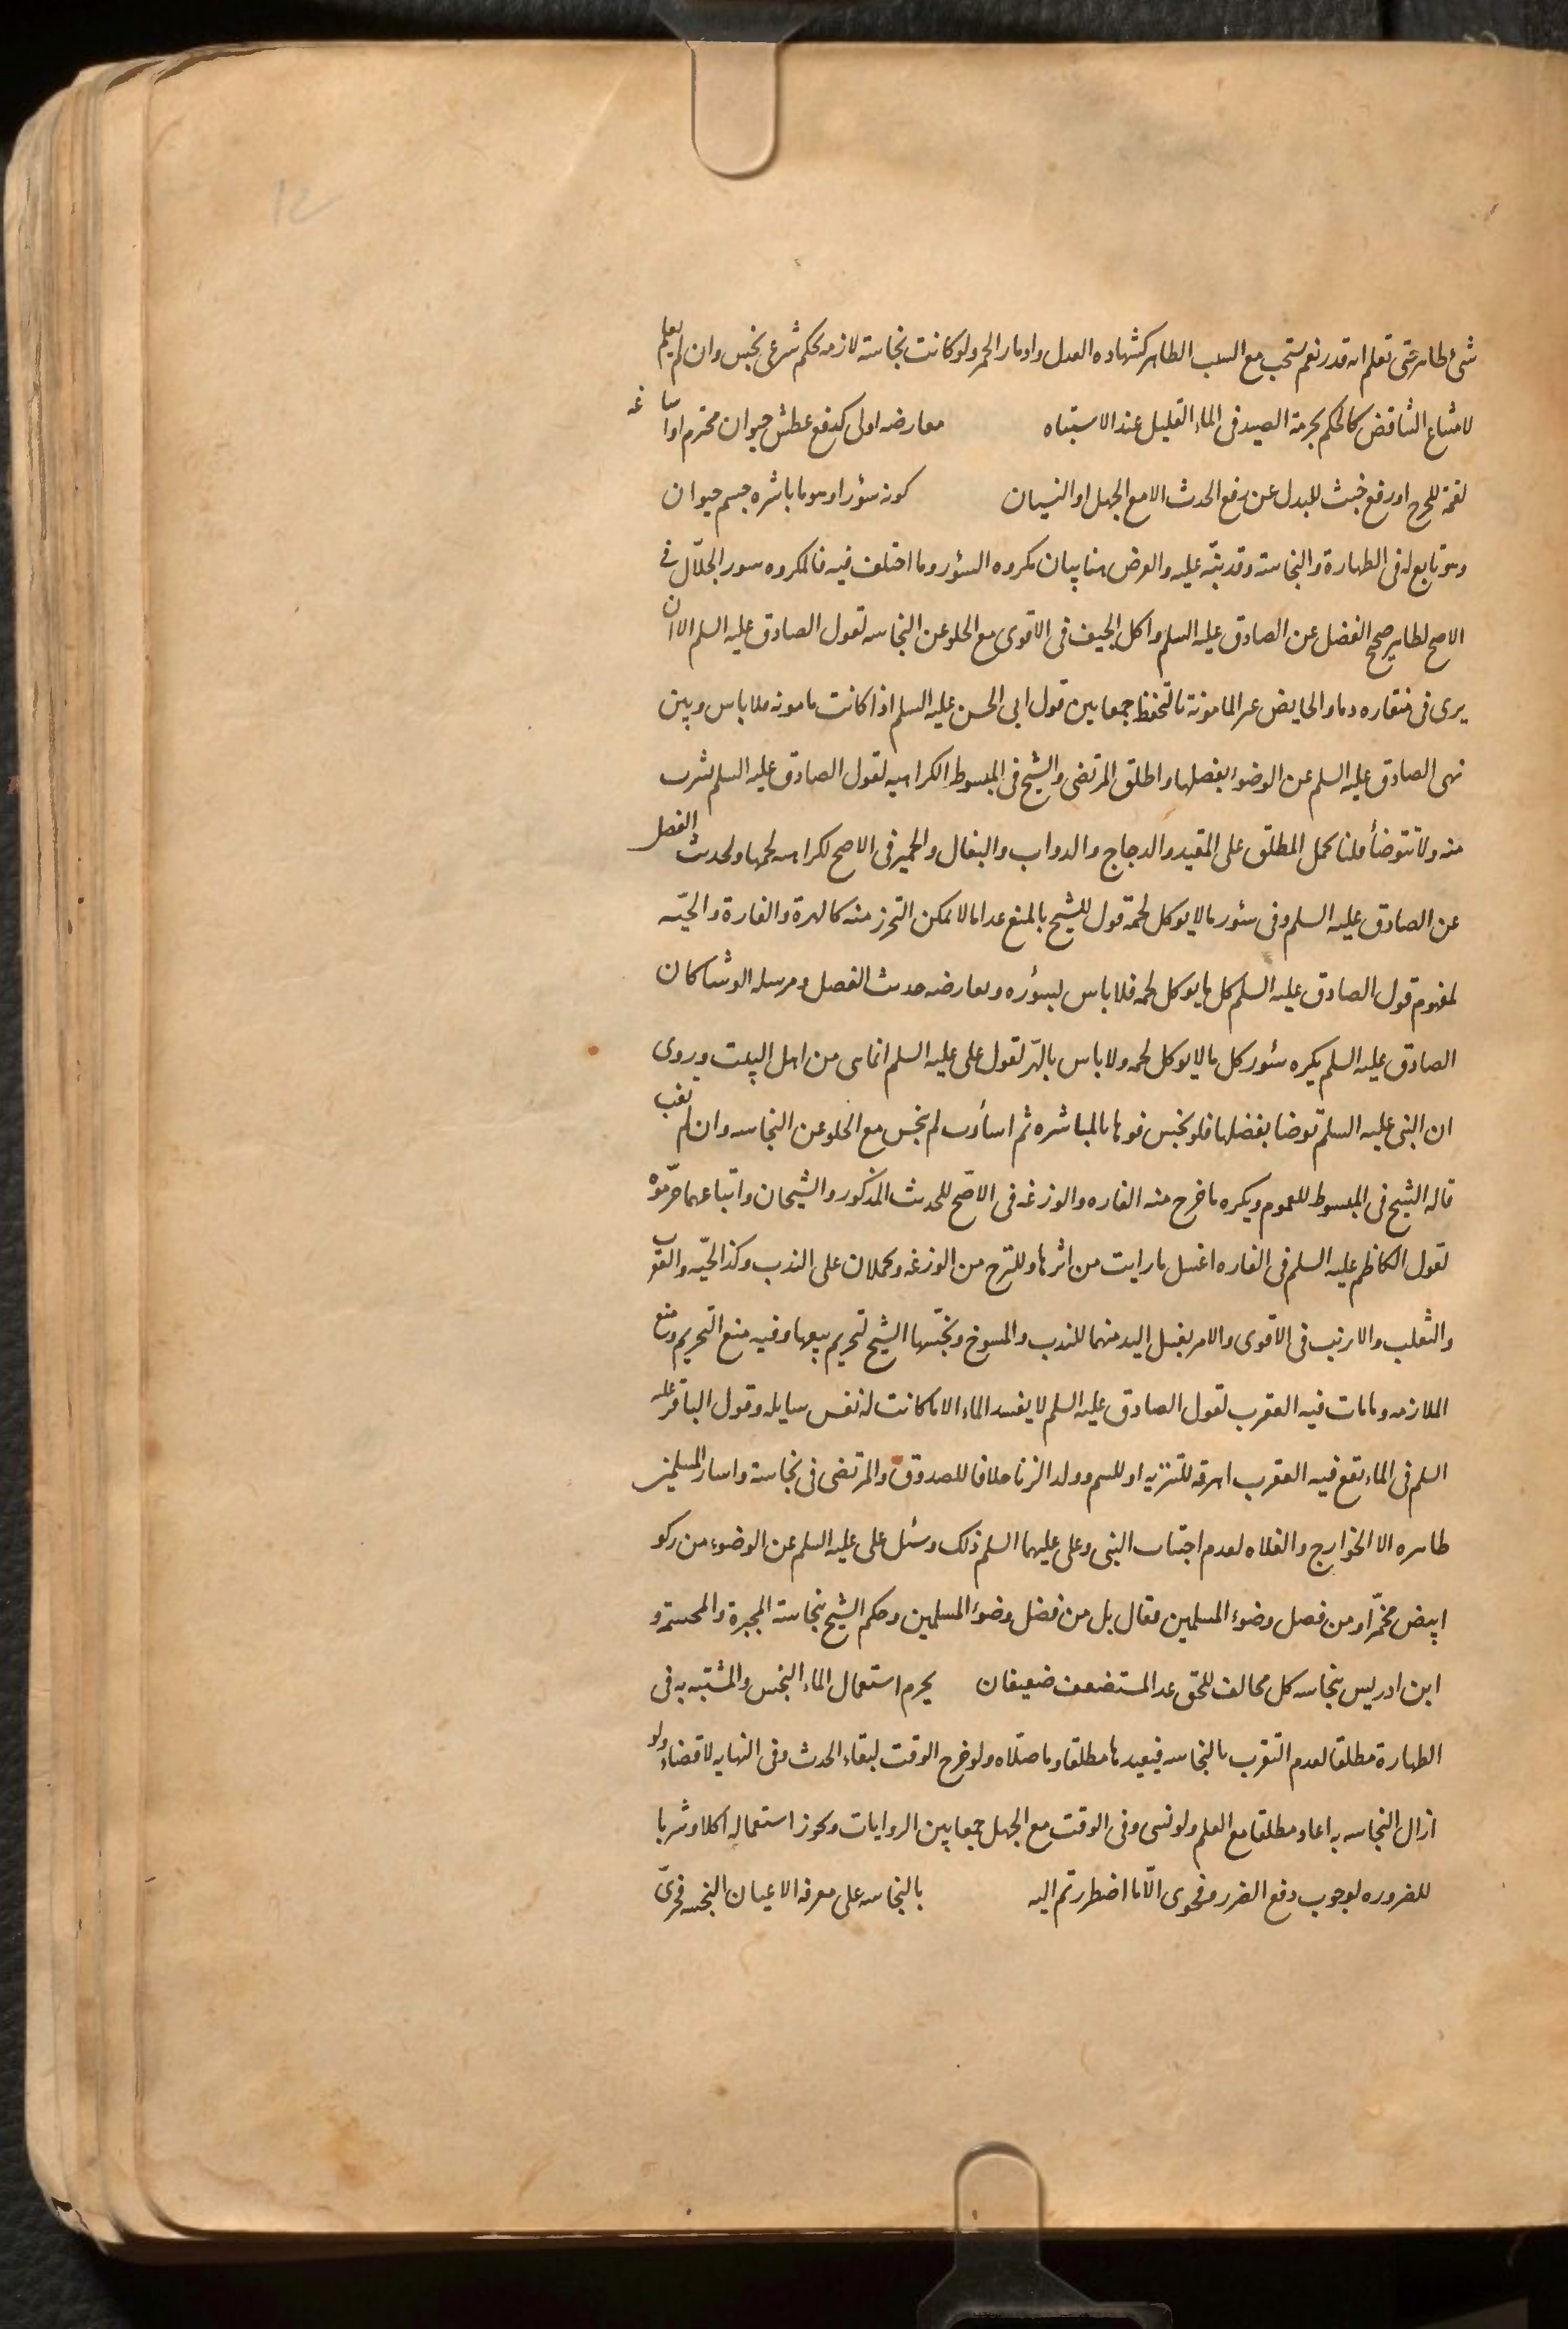 شئ طاهر حتى تعلم انه قذر نعم يستحب مع السبب الظاهر كشهاده العدل وادمار الخمر ولو كانت نجاسته لازمه لحكم شرعى نجس وان لم يعلم
لامتناع التناقض كالحكم بحرمة الصيد فى الماء القليل عند الاشتباه معارضه اولى كدفع عطش حيوان محترم او اسا غه
لقمة للحرج او رفع خبث للبدل عن رفع الحدث الا مع الجهل او النسيان كونه سؤرا وهو ما باشره جسم حيوان
وهو تابع له فى الطهارة والنجاسة وقد نبّه عليه والغرض هنا بيان مكروه السؤر وما اختلف فيه فالمكروه سور الجلّال فى
الاصح لطاهر صحيح الفضل عن الصادق عليه السلم واكل الجيف فى الاقوى مع الخلو عن النجاسه لقول الصادق عليه السلم الا ان
يرى فى منقاره دما والحايض غير المامونة بالتحفظ جمعا بين قول ابى الحسن عليه السلم اذا كانت مامونه فلا باس وبين
نهى الصادق عليه السلم عن الوضوء بفضلها واطلق المرتضى والشيخ فى المبسوط الكراهيه لقول الصادق عليه السلم تشرب
منه ولا تتوضأ قلنا يحمل المطلق على المقيد والدجاج والدواب والبغال والحمير فى الاصح لكراهه لحمها ولحديث الفضل
عن الصادق عليه السلم وفى سئور ما لا يوكل لحمه قول للشيخ بالمنع عدا ما لا يمكن التحرز منه كالهرة والفارة والحيّه
لمفهوم قول الصادق عليه السلم كل ما يوكل لحمه فلا باس بسؤره ويعارضه حديث الفضل ومرسله الوشا كان
الصادق عليه السلم يكره سئور كل ما لا يوكل لحمه ولا باس بالهرّ لقول على عليه السلم انما هى من اهل البيت وروى
ان النبى عليه السلم توضا بفضلها فلو نجس فوها بالمباشره ثم اسأرت لم ينجس مع الخلو عن النجاسه وان لم تغب
قاله الشيخ فى المبسوط للعموم ويكره ما خرج منه الفاره والوزغه فى الاصّح للحديث المذكور والشيخان واتباعهما حرّموه
لقول الكاظم عليه السلم فى الفاره اغسل ما رايت من اثرها وللنزح من الوزغه ويحملان على الندب وكذا الحيّه والعقرب
والثعلب والارنب فى الاقوى والامر بغسل اليد منهما للندب والمسوخ ونجّسها الشيخ لتحريم بيعها وفيه منع التحريم ومنع
الملازمه وما مات فيه العقرب لقول الصادق عليه السلم لا يفسد الماء الا ما كانت له نفس سايله وقول الباقر عليه
السلم فى الماء يقع فيه العقرب اهرقه للتنزيه او للسم وولد الزنا خلافا للصدوق والمرتضى فى نجاسته واسار المسلمين
طاهره الا الخوارج والغلاه لعدم اجتناب النبى وعلى عليهما السلم ذلك وسئل على عليه السلم عن الوضوء من ركو
ابيض مخمّر او من فضل وضوء المسلمين فقال بل من فضل وضوء المسلمين وحكم الشيخ بنجاسة المجبرة والمجسمة و
ابن ادريس بنجاسه كل مخالف للحق عدا المستضعف ضعيفان يحرم استعمال الماء النجس والمشتبه به فى
الطهارة مطلقا لعدم التقرب بالنجاسه فيعيدها مطلقا وما صلّاه ولو خرج الوقت لبقاء الحدث وفى النهايه لا قضاء ولو
ازال النجاسه به اعاد مطلقا مع العلم ولو نسى وفى الوقت مع الجهل جمعا بين الروايات ويجوز استعماله اكلا وشربا
للضروره لوجوب دفع الضرر وفحوى الّا ما اضطررتم اليه بالنجاسه على معرفه الاعيان النجسه فحرىّ